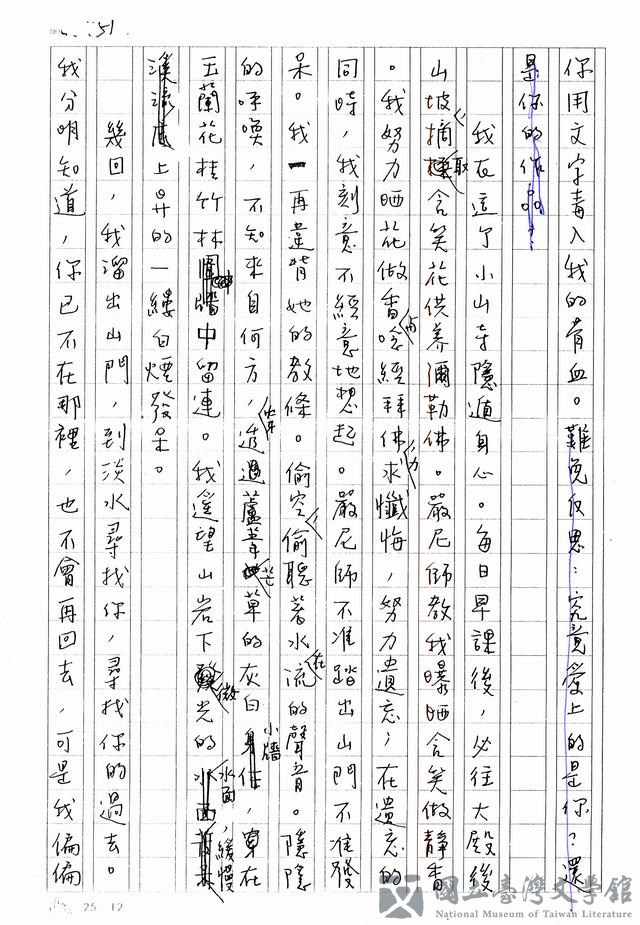 51
你用文字毒入我的膏血。難免反思:究竟愛上的是你?還
是你的作品?
我在這了小山寺隱遁身心。每日早課後,必往大殿後
山坡摘取含笑花供養彌勒佛。嚴尼師教我曝晒含笑做靜香
。我努力晒花做香唸經拜佛求懺悔,努力遺忘;在遺忘的
同時,我刻意不經意地想起。嚴尼師不准踏出山門不准發
呆。我一再違背她的教條。偷空偷聽著水流的聲音。隱隱
的呼喚,不知來自何方,透過蘆葦草的灰白小牆,穿在
玉蘭花桂竹林圍牆中留連。我遙望山岩下微光的水面,緩慢
上昇的一縷白煙發呆。
幾回,我溜出山門,到淡水尋找你,尋找你的過去。
我分明知道,你已不在那裡,也不會再回去,可是我偏偏
25 12
國立臺灣文學館
National Museum of Taiwan Literature